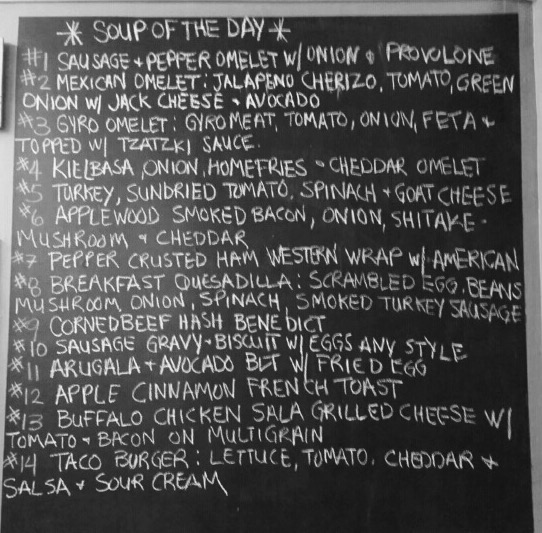 * SOUP OF THE DAY *
#1 SAUSAGE + PEPPER OMELET W/ ONION & PROVOLONE
#2 MEXICAN OMELET: JALAPENO CHERIZO, TOMATO, GREEN
ONION W/ JACK CHEESE + AVOCADO
#3 GYRO OMELET: GYROMEAT, TOMATO, ONION, FETA +
TOPPED W/ TZATZKI SAUCE.
#4 KIELBASA, ONION, HOMEFRIES + CHEDDAR OMELET
#5 TURKEY, SUNDRIED TOMATO, SPINACH + GOAT CHEESE
#6 APPLEWOOD SMOKED BACON, ONION, SHITAKE -
MUSHROOM + CHEDDAR
#7 PEPPER CRUSTED HAM WESTERN WRAP W/ AMERICAN
#8 BREAKFAST QUESADILLA: SCRAMBLED EGG, BEANS
MUSHROOM, ONION, SPINACH, SMOKED TURKEY SAUSAGE
#9 CORNEDBEEF HASH BENEDICT
#10 SAUSAGE GRAVY + BISCUIT W/ EGGS ANY STYLE
#11 ARUGALA + AVOCADO BLT W/ FRIED EGG
#12 APPLE CINNAMON FRENCH TOAST
#13 BUFFALO CHICKEN SALA GRILLED CHEESE W/
TOMATO + BACON ON MULTIGRAIN
#14 TACO BURGER: LETTUCE, TOMATO, CHEDDAR +
SALSA + SOUR CREAM